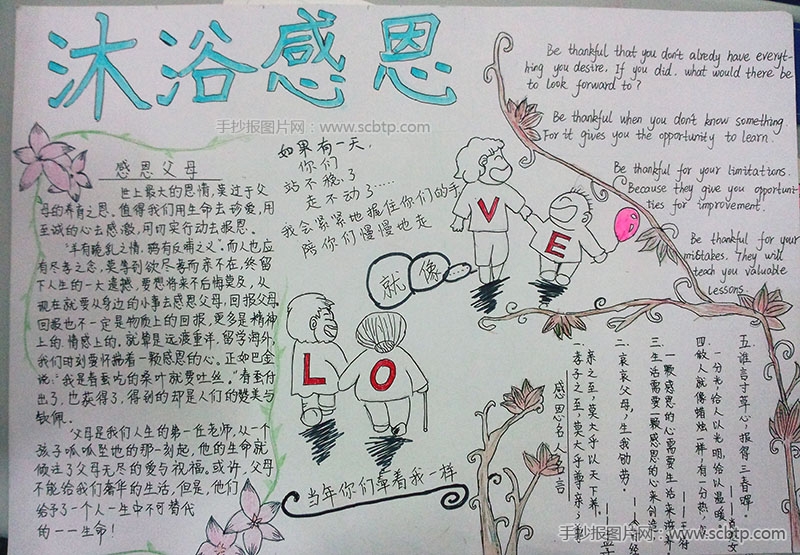 沐浴感恩
手抄报图片网：www.scbtp.com
感恩父母
世上最大的恩情，莫过于父
母的养育之恩。值得我们用生命去珍爱，用
至诚的心去感激，用切实行动去报恩。
"羊有跪乳之情，鸦有反哺之义"。而人也应
有尽孝之念，莫等到欲尽孝而亲不在，终留
下人生的一大遗憾，要想将来不后悔莫及，从
现在就要从身边的小事去感恩父母，回报父母。
回报也不一定是物质上的回报，更多是精神
上的，情感上的。就算是远渡重洋，留学海外，
我们时刻要怀揣着一颗感恩的心。正如巴金
说："我是春蚕，吃的桑叶就要吐丝。"春蚕付
出了，也获得了，得到的却是人们的赞美与
钦佩。
父母是我们人生的第一任老师，从一个
孩子呱呱坠地的那一刻起，他的生命就
倾注了父母无尽的爱与祝福。或许，父母
不能给我们奢华的生活，但是，他们
给予了一个人一生中不可替代
的——生命！
如果有一天，
你们
站不稳了
走不动了……
我会紧紧地握住你们的手
陪你们慢慢地走
就像…
V E
L O
当年你们牵着我一样
Be thankful that you don't alredy have everyt-
hing you desire. If you did. what would there be
to look forward to?
Be thankful when you don't know something
For it gives you the opportunity to learn.
Be thankful for your limitations.
Because they give you opportuni-
ties for improvement.
Be thankful for your
mistakes. They will
teach you valuable
lessons.
感恩名人名言
一、孝子之至，莫大乎尊亲；尊
亲之至，莫大乎以天下养。
——孟子
二、哀哀父母，生我劬劳。
三、生活需要一颗感恩的心来创造，
一颗感恩的心需要生活来滋养
四、做人就像蜡烛一样，有一分热，
一分光，给人以光明，给以温暖
五、谁言寸草心，报得三春晖。
手抄报图片网：www.scbtp.com